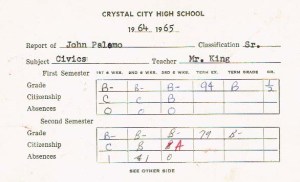 CRYSTAL CITY HIGH SCHOOL
1964 1965
Report of John Palomo Classification Sr.
Subject Civics Teacher Mr. King
First Semester 1ST 6 WKS. 2ND 6 WKS. 3RD 6 WKS. TERM EX. TERM GRADE CR.
Grade B- B- B- 94 B 1/2
Citizenship C C B
Absences 0 0 0
Second Semester
Grade B- B- B- 79 B-
Citizenship C B A
Absences 1 1 0
SEE OTHER SIDE